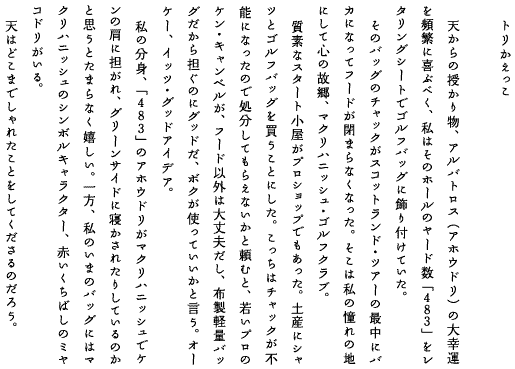 トリかえっこ
天からの授かり物、アルバトロス（アホウドリ）の大幸運
を頻繁に喜ぶべく、私はそのホールのヤード数「４８３」をレ
タリングシートでゴルフバッグに飾り付けていた。
そのバッグのチャックがスコットランド・ツアーの最中にバ
カになってフードが閉まらなくなった。そこは私の憧れの地
にして心の故郷、マクリハニッシュ・ゴルフクラブ。
質素なスタート小屋がプロショップでもあった。土産にシャ
ツとゴルフバッグを買うことにした。こっちはチャックが不
能になったので処分してもらえないかと頼むと、若いプロの
ケン・キャンベルが、フード以外は大丈夫だし、布製軽量バッ
グだから担ぐのにグッドだ、ボクが使っていいかと言う。オー
ケー、イッツ・グッドアイデア。
私の分身、「４８３」のアホウドリがマクリハニッシュでケ
ンの肩に担がれ、グリーンサイドに寝かされたりしているのか
と思うとたまらなく嬉しい。一方、私のいまのバッグにはマ
クリハニッシュのシンボルキャラクター、赤いくちばしのミヤ
コドリがいる。
天はどこまでしゃれたことをしてくださるのだろう。